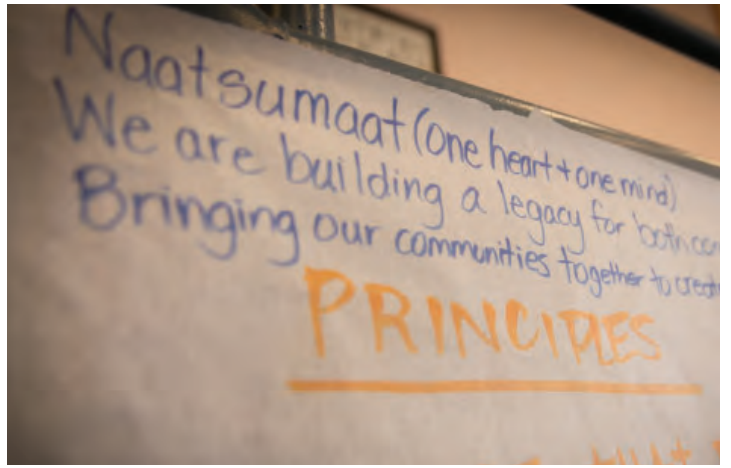 Naatsumaat (one heart + one mind)
We are building a legacy for both
Bringing our communities together to create
PRINCIPLES
that